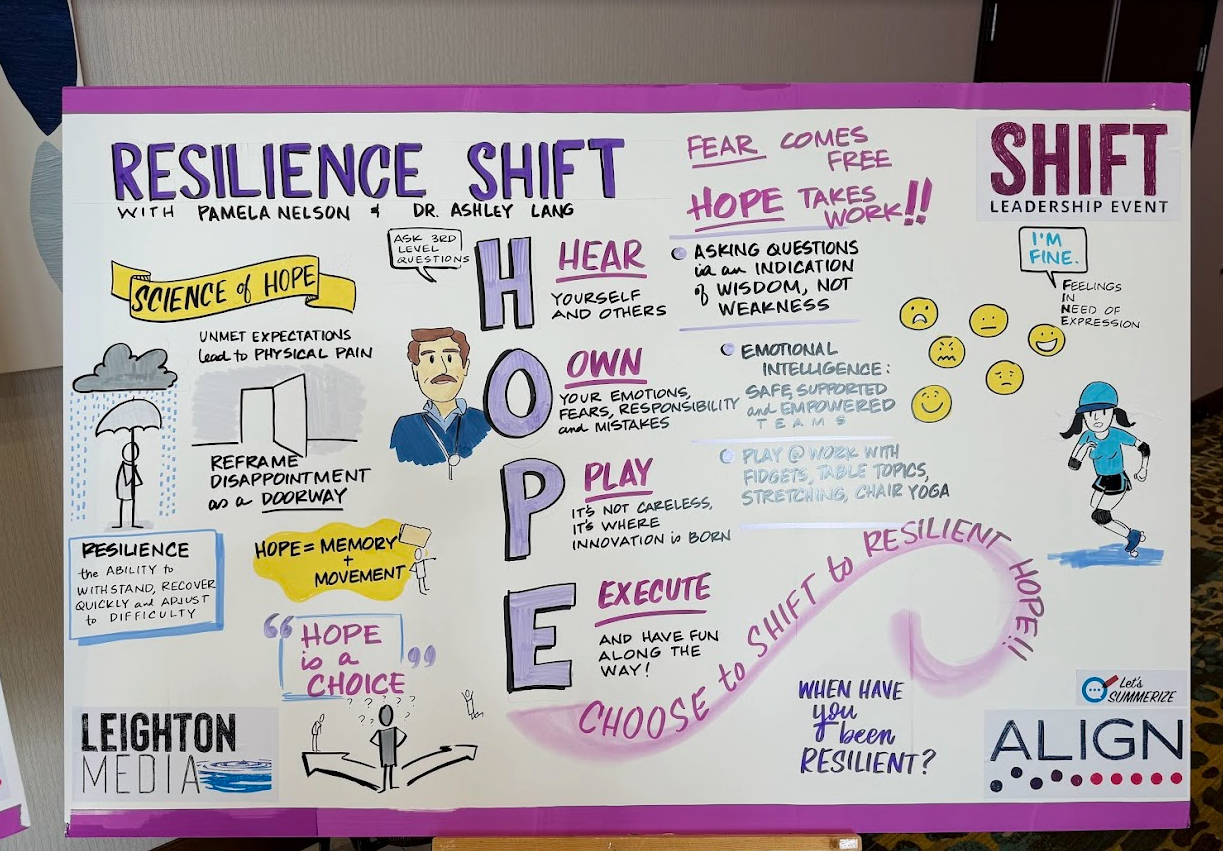 RESILIENCE SHIFT
WITH PAMELA NELSON & DR. ASHLEY LANG
FEAR COMES
FREE
HOPE TAKES
WORK!!
SHIFT
LEADERSHIP EVENT
SCIENCE of HOPE
UNMET EXPECTATIONS
lead to PHYSICAL PAIN
REFRAME
DISAPPOINTMENT
as a DOORWAY
RESILIENCE
the ABILITY to
WITHSTAND, RECOVER
QUICKLY and ADJUST
to DIFFICULTY
HOPE = MEMORY
+
MOVEMENT
“HOPE
is a
CHOICE”
? ? ? ? ? ?
LEIGHTON
MEDIA
ASK 3RD
LEVEL
QUESTIONS
H
HEAR
YOURSELF
AND OTHERS
O
OWN
YOUR EMOTIONS,
FEARS, RESPONSIBILITY
and MISTAKES
P
PLAY
IT'S NOT CARELESS,
IT'S WHERE
INNOVATION is BORN
E
EXECUTE
AND HAVE FUN
ALONG THE
WAY!
ASKING QUESTIONS
is an INDICATION
of WISDOM, NOT
WEAKNESS
EMOTIONAL
INTELLIGENCE:
SAFE, SUPPORTED
and EMPOWERED
TEAMS
PLAY @ WORK WITH
FIDGETS, TABLE TOPICS,
STRETCHING, CHAIR YOGA
I'M
FINE.
FEELINGS
IN
NEED OF
EXPRESSION
CHOOSE to SHIFT to RESILIENT HOPE!!
WHEN HAVE
you
been
RESILIENT?
Let's
SUMMERIZE
ALIGN